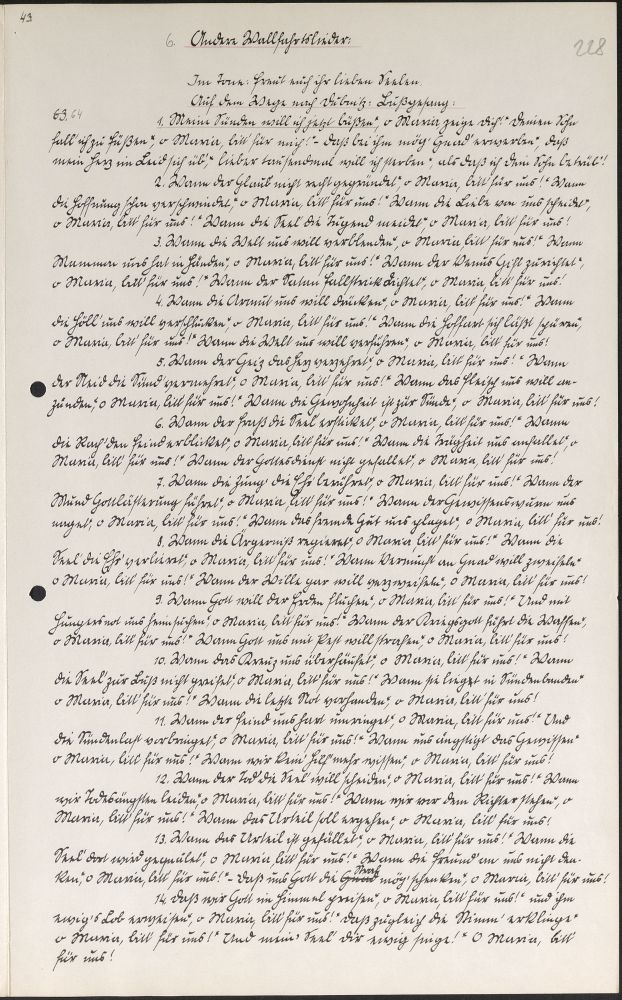 43
6. Andere Wallfahrtslieder:
228
Im Tone: Freut euch ihr lieben Seelen.
Auf dem Wege nach Dubnitz: Bußgesang:
63,64
1. Meine Sünden will ich jetzt büßen", o Maria zeige dich!" Deinen Sohn
fall' ich zu Füßen", o Maria, bitt' für mich!"- Daß bei ihm mög' Gnad' erwerben", daß
mein Herz in Leid sich üb'," lieber tausendmal will ich sterben", als daß ich dein Sohn betrüb'!
2. Wann der Glaub' nicht recht gegründet", o Maria, bitt' für uns!" Wann
die Hoffnung schon verschwindet", o Maria, bitt' für uns!" Wann die Liebe von uns scheidet",
o Maria, bitt' für uns!" Wann die Seel' die Tugend meidet", o Maria, bitt' für uns!
3. Wann die Welt uns will verblenden", o Maria bitt' für uns!" Wann
Mammon uns hat in Händen", o Maria, bitt' für uns!" Wann der Venus Gift zurichtet",
o Maria, bitt' für uns!" Wann der Satan Fallstrick dichtet", o Maria, bitt' für uns!
4. Wann die Armut uns will drücken", o Maria, bitt' für uns!" Wann
die Höll' uns will verschlucken", o Maria, bitt' für uns!" Wann die Hoffart sich läßt spüren",
o Maria, bitt' für uns!" Wann die Welt uns will verführen", o Maria, bitt' für uns!
5. Wann der Geiz das Herz verzehret", o Maria, bitt' für uns!" Wann
der Neid die Sünd' vermehret", o Maria, bitt' für uns!" Wann das Fleisch uns will an-
zünden", o Maria, bitt' für uns!" Wann die Gewohnheit ist zur Sünde", o Maria, bitt' für uns!
6. Wann der Fraß die Seel' ersticket", o Maria, bitt' für uns!" Wann
die Rach' den Feind erblicket", o Maria, bitt' für uns!" Wann die Trägheit uns anfallet", o
Maria, bitt' für uns!" Wann der Gottesdienst nicht gefallet", o Maria, bitt' für uns!
7. Wann die Zung' die Ehr' berühret", o Maria, bitt' für uns!" Wann der
Mund Gottlästerung führet", o Maria, bitt' für uns!" Wann der Gewissenswurm uns
naget", o Maria, bitt' für uns!" Wann das fremde Gut uns plaget", o Maria, bitt' für uns!
8. Wann die Ärgerniß regieret", o Maria bitt' für uns!" Wann die
Seel' die Ehr' verlieret", o Maria, bitt' für uns!" Wann Vernunft an Gnad' will zweifeln"
o Maria, bitt' für uns!" Wann der Wille gar will verzweifeln", o Maria, bitt' für uns!
9. Wann Gott will der Erden fluchen", o Maria, bitt' für uns!" Und mit
Hungersnot uns heimsuchen", o Maria, bitt' für uns!" Wann der Kriegsgott führt die Waffen",
o Maria, bitt' für uns!" Wann Gott uns mit Pest will strafen", o Maria, bitt' für uns!
10. Wann das Kreuz uns überhäufet", o Maria, bitt' für uns!" Wann
die Seel' zur Buß nicht greifet", o Maria, bitt' für uns!" Wann sie lieget in Sündenbanden"
o Maria, bitt' für uns!" Wann die letzte Not vorhanden", o Maria, bitt' für uns!
11. Wann der Feind uns hart umringet", o Maria, bitt' für uns!" Und
die Sündenlast vorbringet", o Maria, bitt' für uns!" Wann uns ängstigt das Gewissen"
o Maria, bitt' für uns!" Wann wir kein' Hilf' mehr wissen", o Maria, bitt' für uns!
12. Wann der Tod die Seel' will scheiden", o Maria, bitt' für uns!" Wann
wir Todesängsten leiden", o Maria, bitt' für uns!" Wann wir vor dem Richter stehen", o
Maria, bitt' für uns!" Wann das Urteil soll ergehen", o Maria, bitt' für uns!
13. Wann das Urteil ist gefället", o Maria, bitt' für uns!" Wann die
Seel' dort wird gequälet", o Maria bitt' für uns!" Wann die Freund' an uns nicht den-
ken", o Maria, bitt' für uns!"- Daß uns Gott die mög' schenken", o Maria, bitt' für uns!
14. Daß wir Gott im Himmel preisen", o Maria bitt' für uns!" und ihm
ewig's Lob erweisen", o Maria, bitt' für uns!" Daß zugleich die Stimm' erklinge"
o Maria, bitt' für uns!" Und mein' Seel' dir ewig singe!" O Maria, bitt'
für uns!